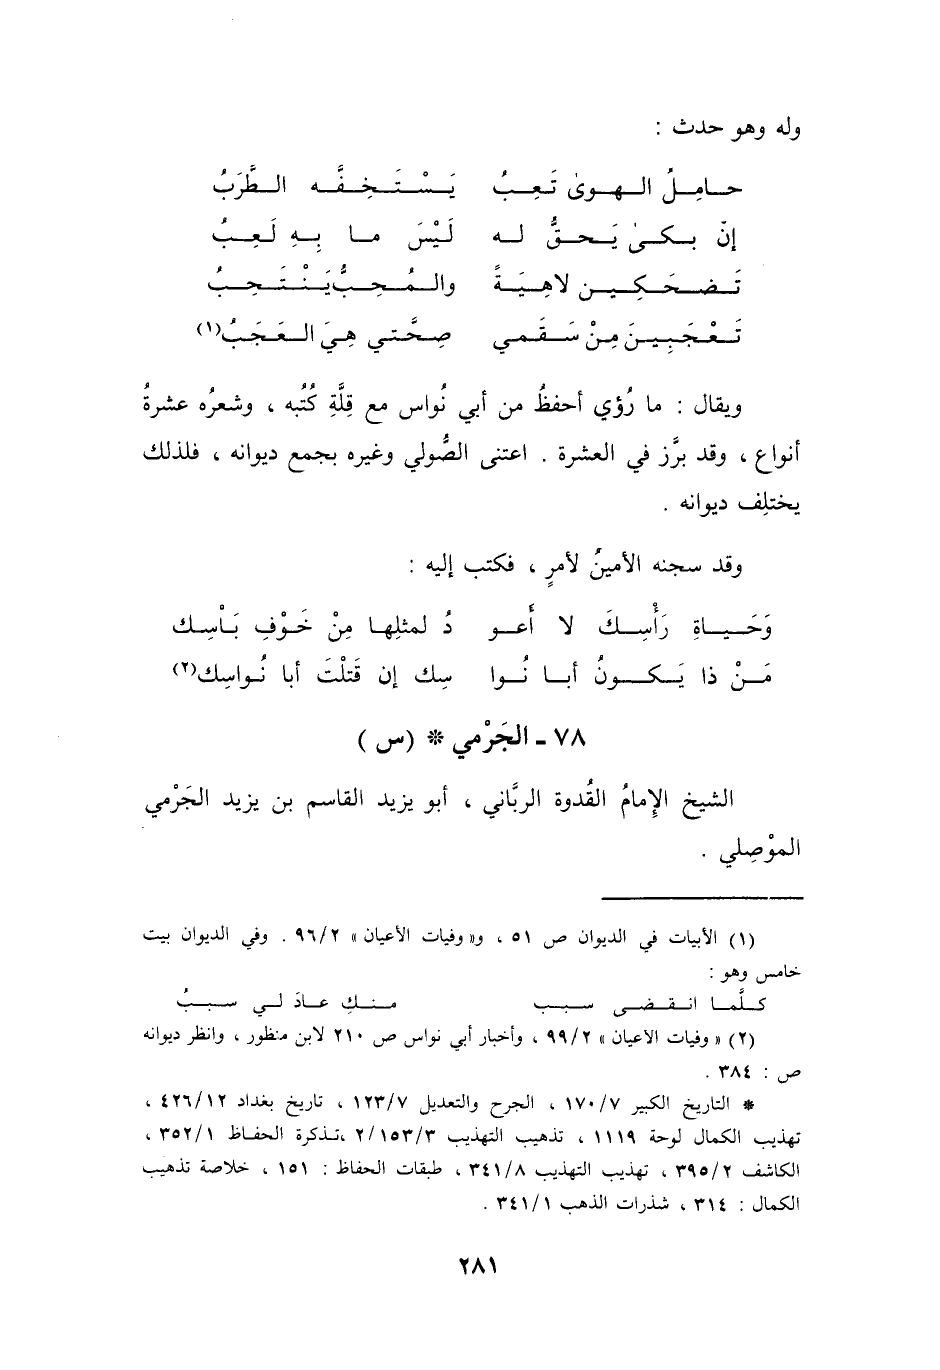 وله وهو حدث :
حامِلُ الهوىٰ تَعِبُ    يَسْتَخِفَّه الطَّرَبُ
إنْ بكىٰ يَحقُّ له    لَيْسَ ما بِهِ لَعِبُ
تَضحَكين لاهِيَةً    والمُحِبُّ يَنْتَحِبُ
تَعْجَبِينَ مِنْ سَقَمي    صِحَّتي هِيَ العَجَبُ(١)
ويقال : ما رُؤي أحفظُ من أبي نُواس مع قِلَّةِ كُتُبه ، وشعرُه عشرةُ
أنواع ، وقد برَّز في العشرة . اعتنى الصُّولي وغيره بجمع ديوانه ، فلذلك
يختلِف ديوانه .
وقد سجنه الأمينُ لأمرٍ ، فكتب إليه :
وَحَياةِ رَأْسِكَ لا أَعو    دُ لمثلِها مِنْ خَوْفِ بَأْسِك
مَنْ ذا يَكونُ أبا نُوا    سِك إن قَتلْتَ أبا نُواسِك(٢)
٧٨ ـ الجَرْمي * (س )
الشيخ الإِمامُ القُدوة الربَّاني ، أبو يزيد القاسم بن يزيد الجَرْمي
الموْصِلي .
(١) الأبيات في الديوان ص ٥١ ، و« وفيات الأعيان » ٩٦/٢ . وفي الديوان بيت
خامس وهو :
كلَّما انقضى سبب    منكِ عادَ لي سببُ
(٢) « وفيات الاعيان » ٩٩/٢ ، وأخبار أبي نواس ص ٢١٠ لابن منظور ، وانظر ديوانه
ص : ٣٨٤ .
* التاريخ الكبير ١٧٠/٧ ، الجرح والتعديل ١٢٣/٧ ، تاريخ بغداد ٤٢٦/١٢ ،
تهذيب الكمال لوحة ١١١٩ ، تذهيب التهذيب ٢/١٥٣/٣ ،تذكرة الحفاظ ٣٥٢/١ ،
الكاشف ٣٩٥/٢ ، تهذيب التهذيب ٣٤١/٨ ، طبقات الحفاظ : ١٥١ ، خلاصة تذهيب
الكمال : ٣١٤ ، شذرات الذهب ٣٤١/١ .
٢٨١